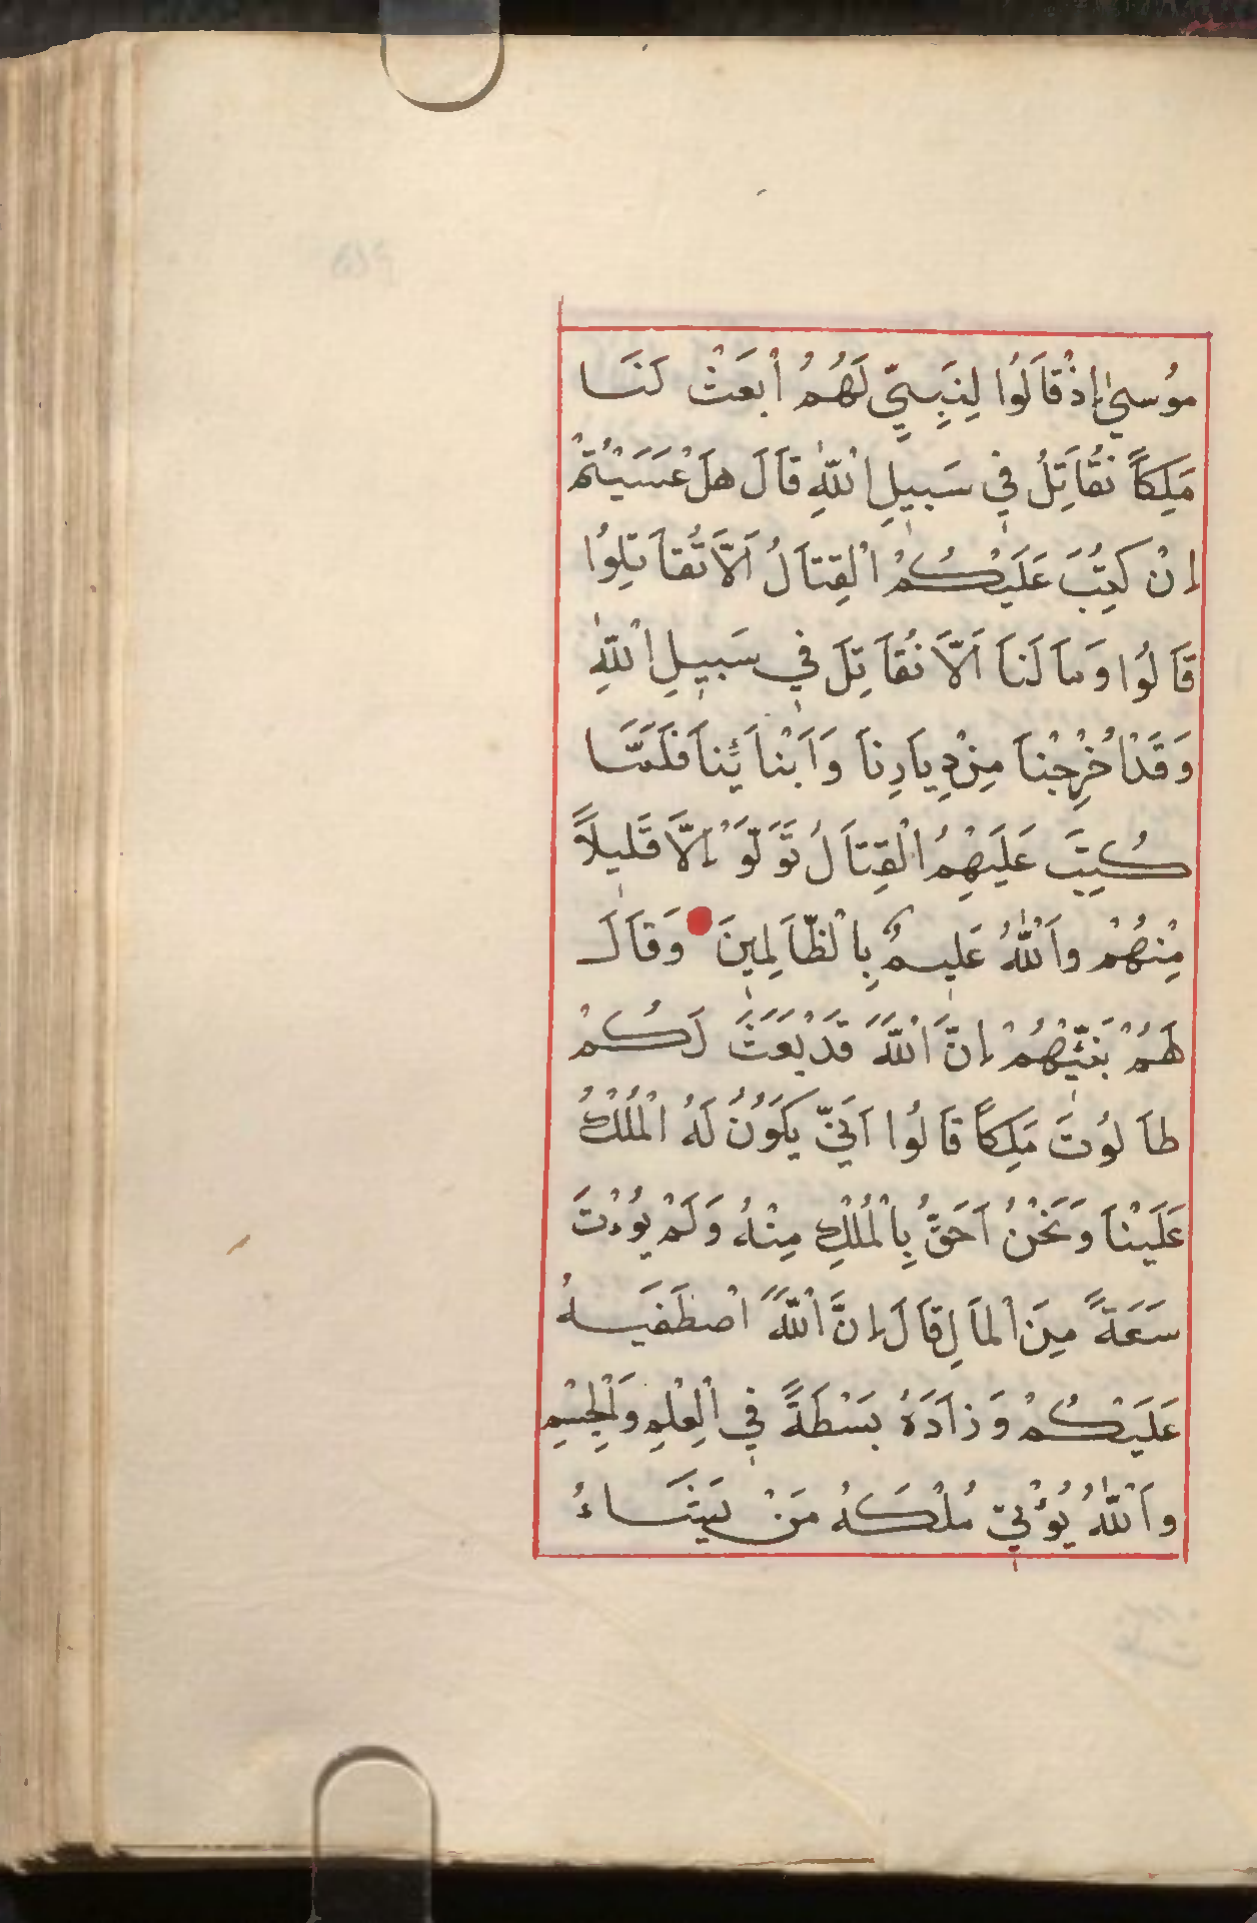 مُوسيٰ إِذْ قَالُوا لِنَبِيٍّ لَهُمُ ابْعَثْ لَنَا
مَلِكاً نُقَاتِلُ فِي سَبِيلِ اللّٰهِ قَالَ هَلْ عَسَيْتُمْ
إِنْ كُتِبَ عَلَيْكُمُ الْقِتَالُ اَلَّا تُقَاتِلُوا
قَالُوا وَمَا لَنَا اَلَّا نُقَاتِلَ فِي سَبِيلِ اللّٰهِ
وَقَدْ اُخْرِجْنَا مِنْ دِيَارِنَا وَاَبْنَائِنَا فَلَمَّا
كُتِبَ عَلَيْهِمُ الْقِتَالُ تَوَلَّوْا إِلَّا قَلِيلاً
مِنْهُمْ وَاللّٰهُ عَلِيمٌ بِالظَّالِمِينَ وَقَالَ
لَهُمْ نَبِيُّهُمْ إِنَّ اللّٰهَ قَدْ بَعَثَ لَكُمْ
طَالُوتَ مَلِكاً قَالُوا اَنّيٰ يَكُونُ لَهُ الْمُلْكُ
عَلَيْنَا وَنَحْنُ اَحَقُّ بِالْمُلْكِ مِنْهُ وَلَمْ يُوءْتَ
سَعَةً مِنَ الْمَالِ قَالَ إِنَّ اللّٰهَ اصْطَفَيهُ
عَلَيْكُمْ وَزَادَهُ بَسْطَةً فِي الْعِلْمِ وَالْجِسْمِ
وَاللّٰهُ يُؤْتِي مُلْكَهُ مَنْ يَشَاءُ